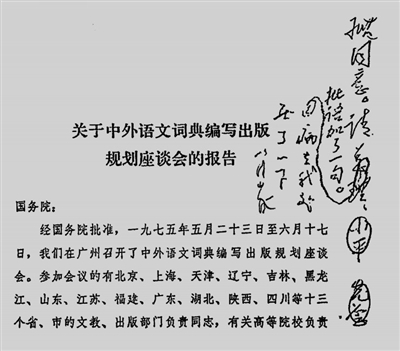 拟同意。请
小平
批语加了一句。
因病在我处
压了一下
关于中外语文词典编写出版
规划座谈会的报告
国务院:
经国务院批准,一九七五年五月二十三日至六月十七
日,我们在广州召开了中外语文词典编写出版规划座谈
会。参加会议的有北京、上海、天津、辽宁、吉林、黑龙
江、山东、江苏、福建、广东、湖北、陕西、四川等十三
个省、市的文教、出版部门负责同志,有关高等院校负责